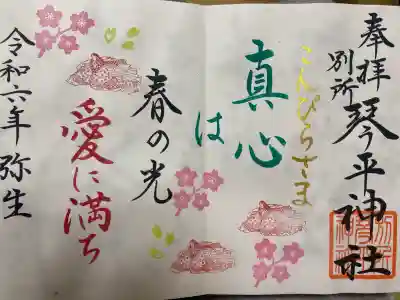 奉拝
別所
琴平神社
こんぴらさま
真心
は
春の光
愛に満ち
令和六年 弥生